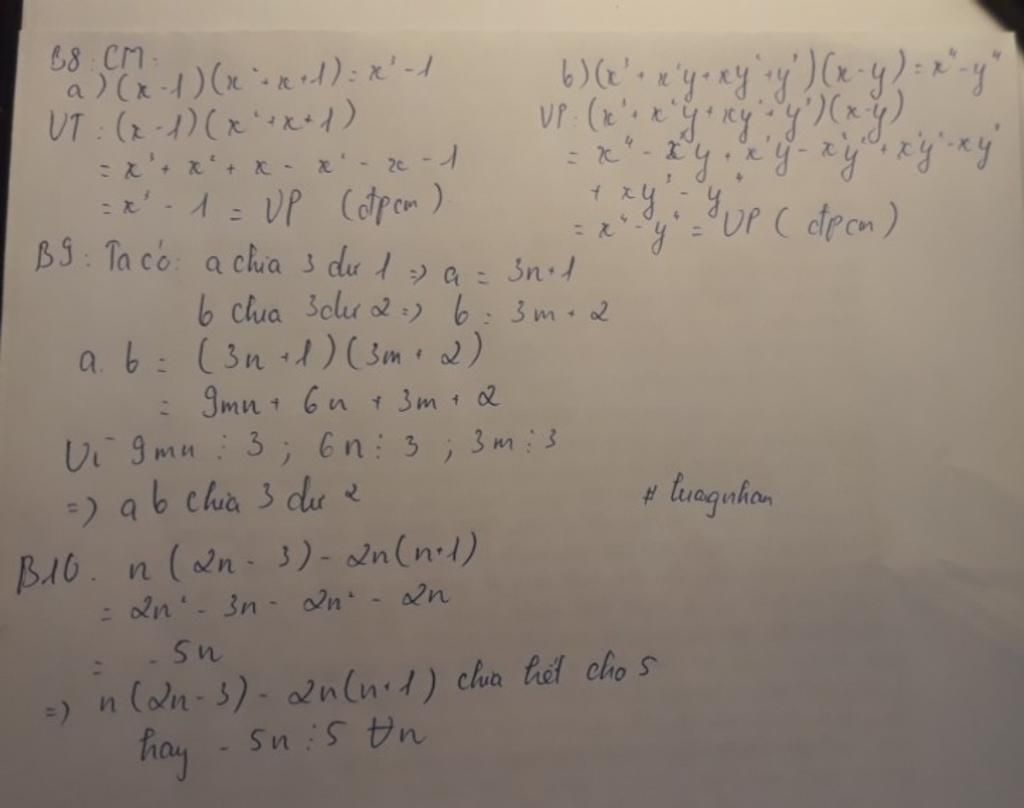 B8: CM:
a) (x-1)(x²+x+1) = x³-1
VT: (x-1)(x²+x+1)
= x³ + x² + x - x² - x - 1
= x³ - 1 = VP (đpcm)
b) (x³ + x²y + xy² + y³)(x-y) = x⁴-y⁴
VP: (x³ + x²y + xy² + y³)(x-y)
= x⁴ - x³y + x³y - x²y² + x²y² - xy³
+ xy³ - y⁴
= x⁴ - y⁴ = VP (đpcm)
B9: Ta có: a chia 3 dư 1 => a = 3n+1
b chia 3 dư 2 => b = 3m + 2
a. b = (3n + 1)(3m + 2)
= 9mn + 6n + 3m + 2
Vì 9mn ⋮ 3 ; 6n ⋮ 3 ; 3m ⋮ 3
=> ab chia 3 dư 2
B10. n(2n - 3) - 2n(n+1)
= 2n² - 3n - 2n² - 2n
= -5n
=> n(2n-3) - 2n(n+1) chia hết cho 5
hay - 5n ⋮ 5 ∀n